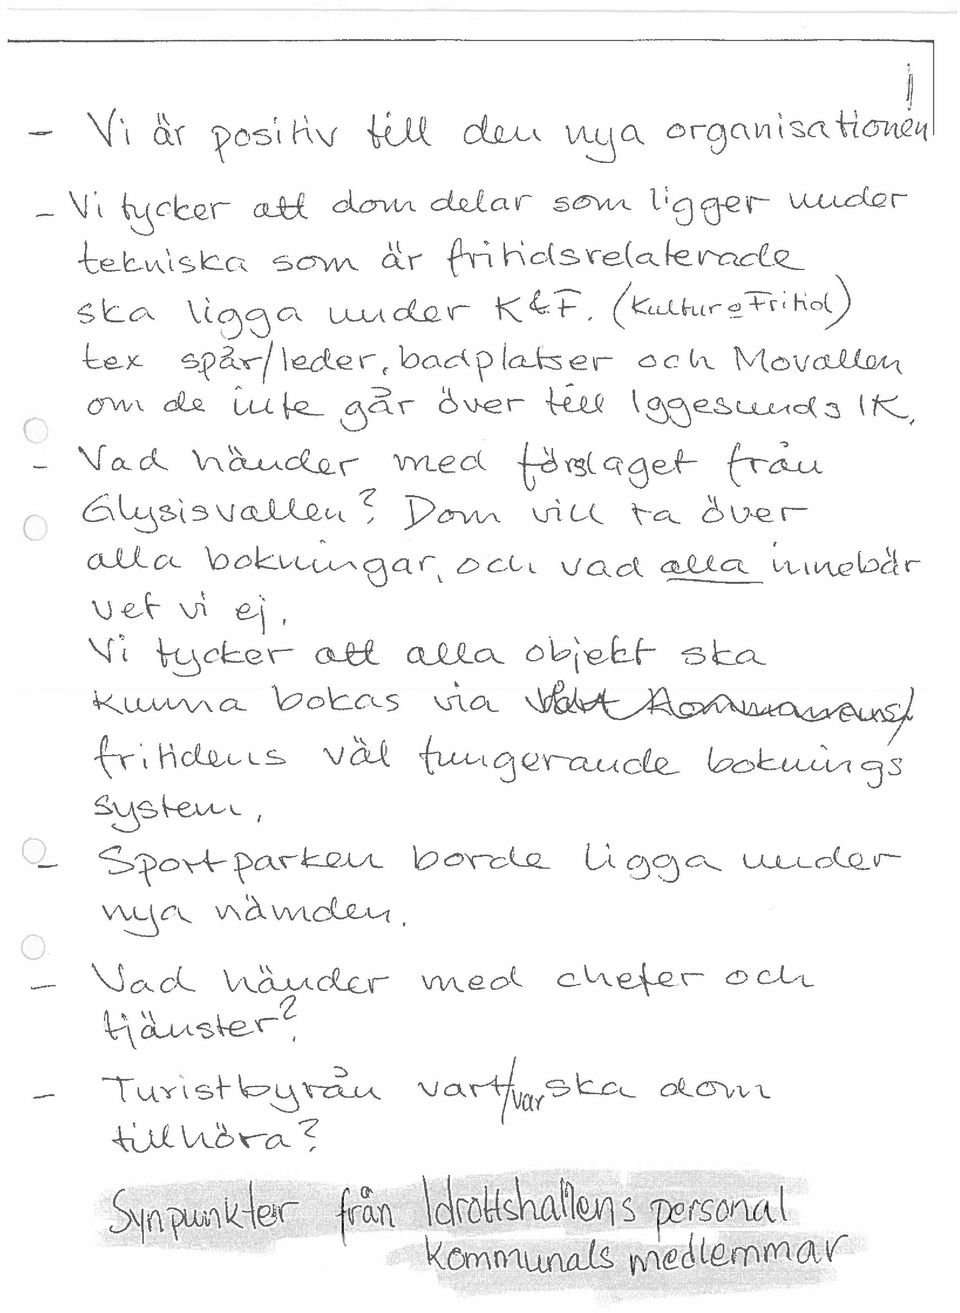 - Vi är positiv till den nya organisationen
- Vi tycker att dom delar som ligger under
tekniska som är fritidsrelaterade
ska ligga under K&F. (Kultur o Fritid)
tex spår/leder, badplatser och Movallen
om de inte går över till Iggesunds IK.
- Vad händer med förslaget från
Glysisvallen? Dom vill ta över
alla bokningar, och vad alla innebär
vet vi ej.
Vi tycker att alla objekt ska
kunna bokas via
fritidens väl fungerande boknings
system.
- Sportparken borde ligga under
nya nämden.
- Vad händer med chefer och
tjänster?
- Turistbyrån vart/var ska dom
tillhöra?
Synpunkter från Idrottshallens personal
kommunals medlemmar